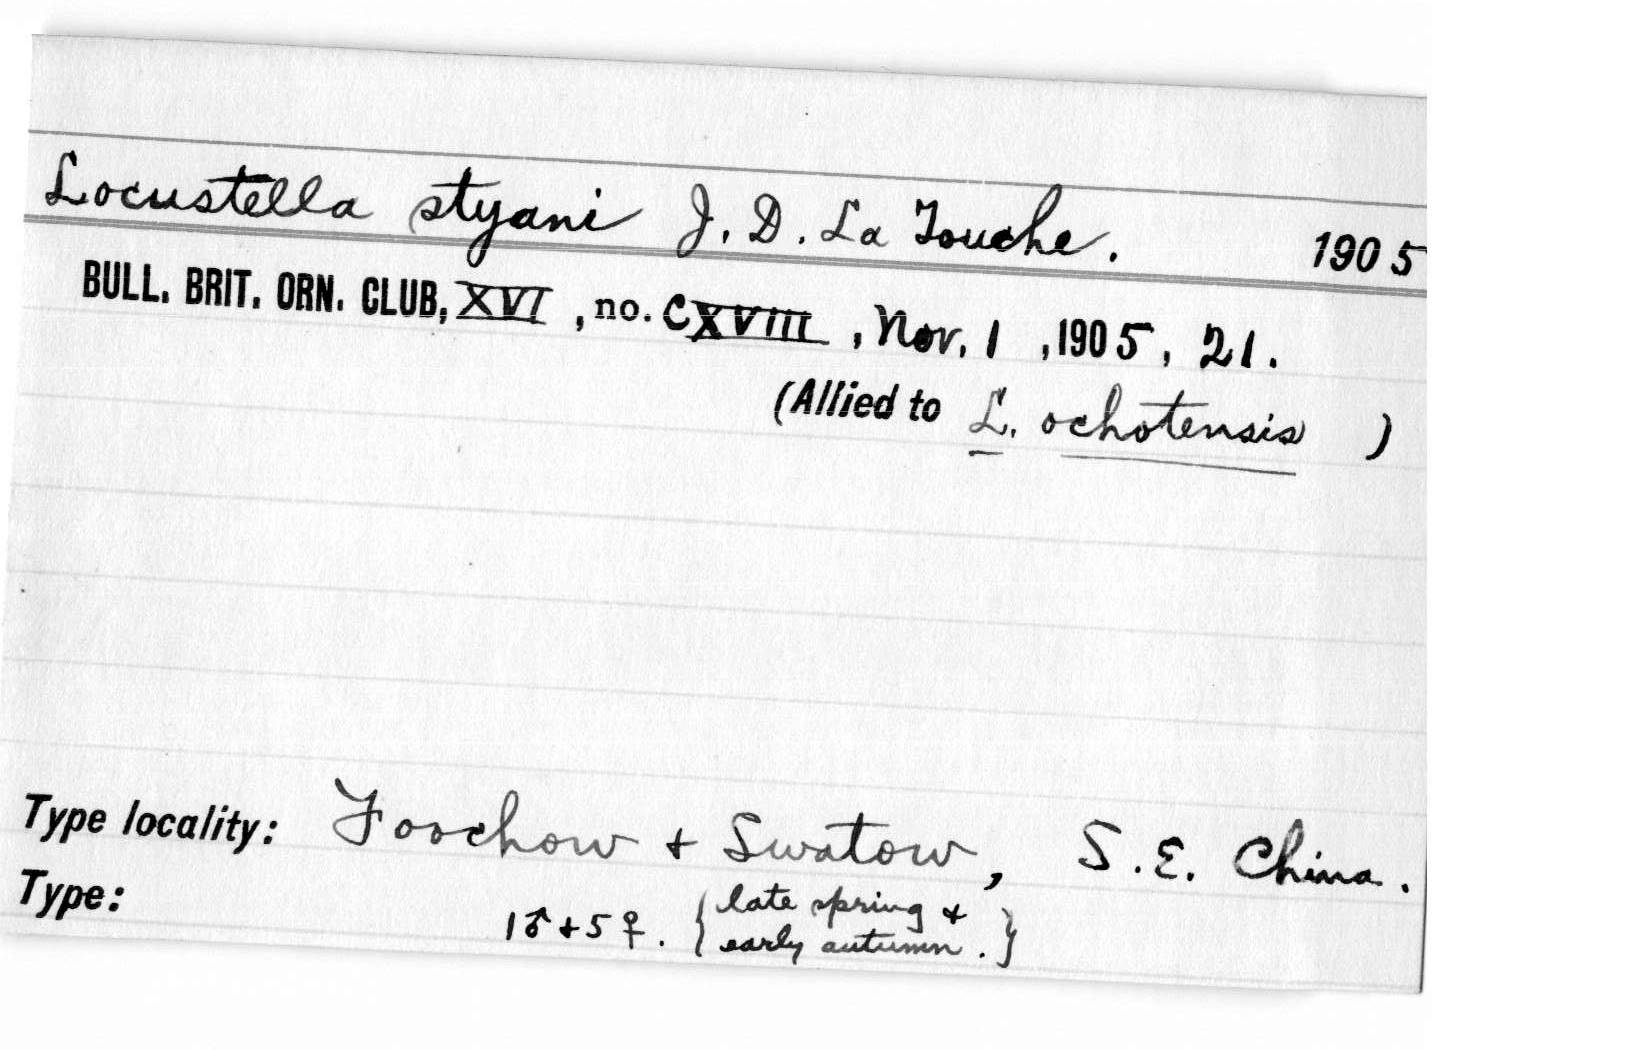 Locustella styani J. D. La Touche. 1905
BULL. BRIT. ORN. CLUB, XVI, no. CXVIII, Nov. 1, 1905, 21.
(Allied to L. ochotensis)
Type locality: Foochow + Swatow, S.E. China.
Type: 1♂+5♀. {late spring +
early autumn.}